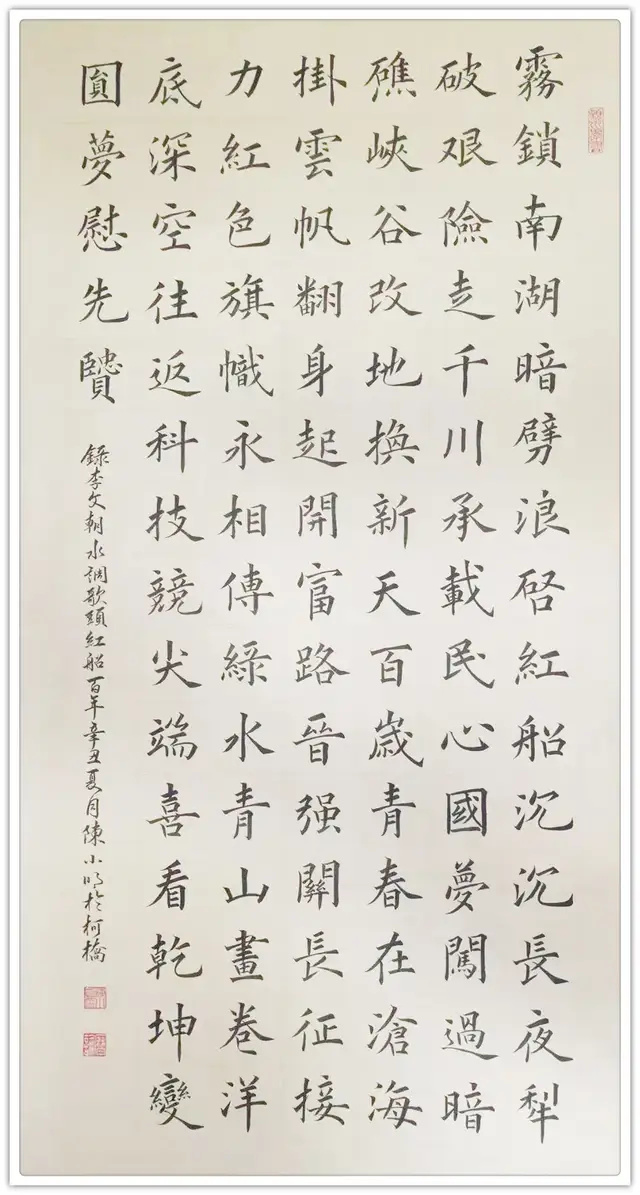 霧鎖南湖暗劈浪啓紅船沉沉長夜犁
破艰險走千川承載民心國夢闖過暗
礁峽谷改地換新天百歲青春在滄海
掛雲帆翻身起開富路晉强關長征接
力紅色旗幟永相傳綠水青山畫卷洋
底深空往返科技競尖端喜看乾坤變
圓夢慰先贒
錄李文朝水調歌頭紅船百年辛丑夏月陳小明於柯橋